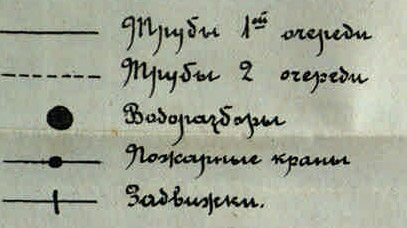 Трубы 1ой очереди
Трубы 2 очереди
Водоразборы
Пожарные краны
Задвижки.